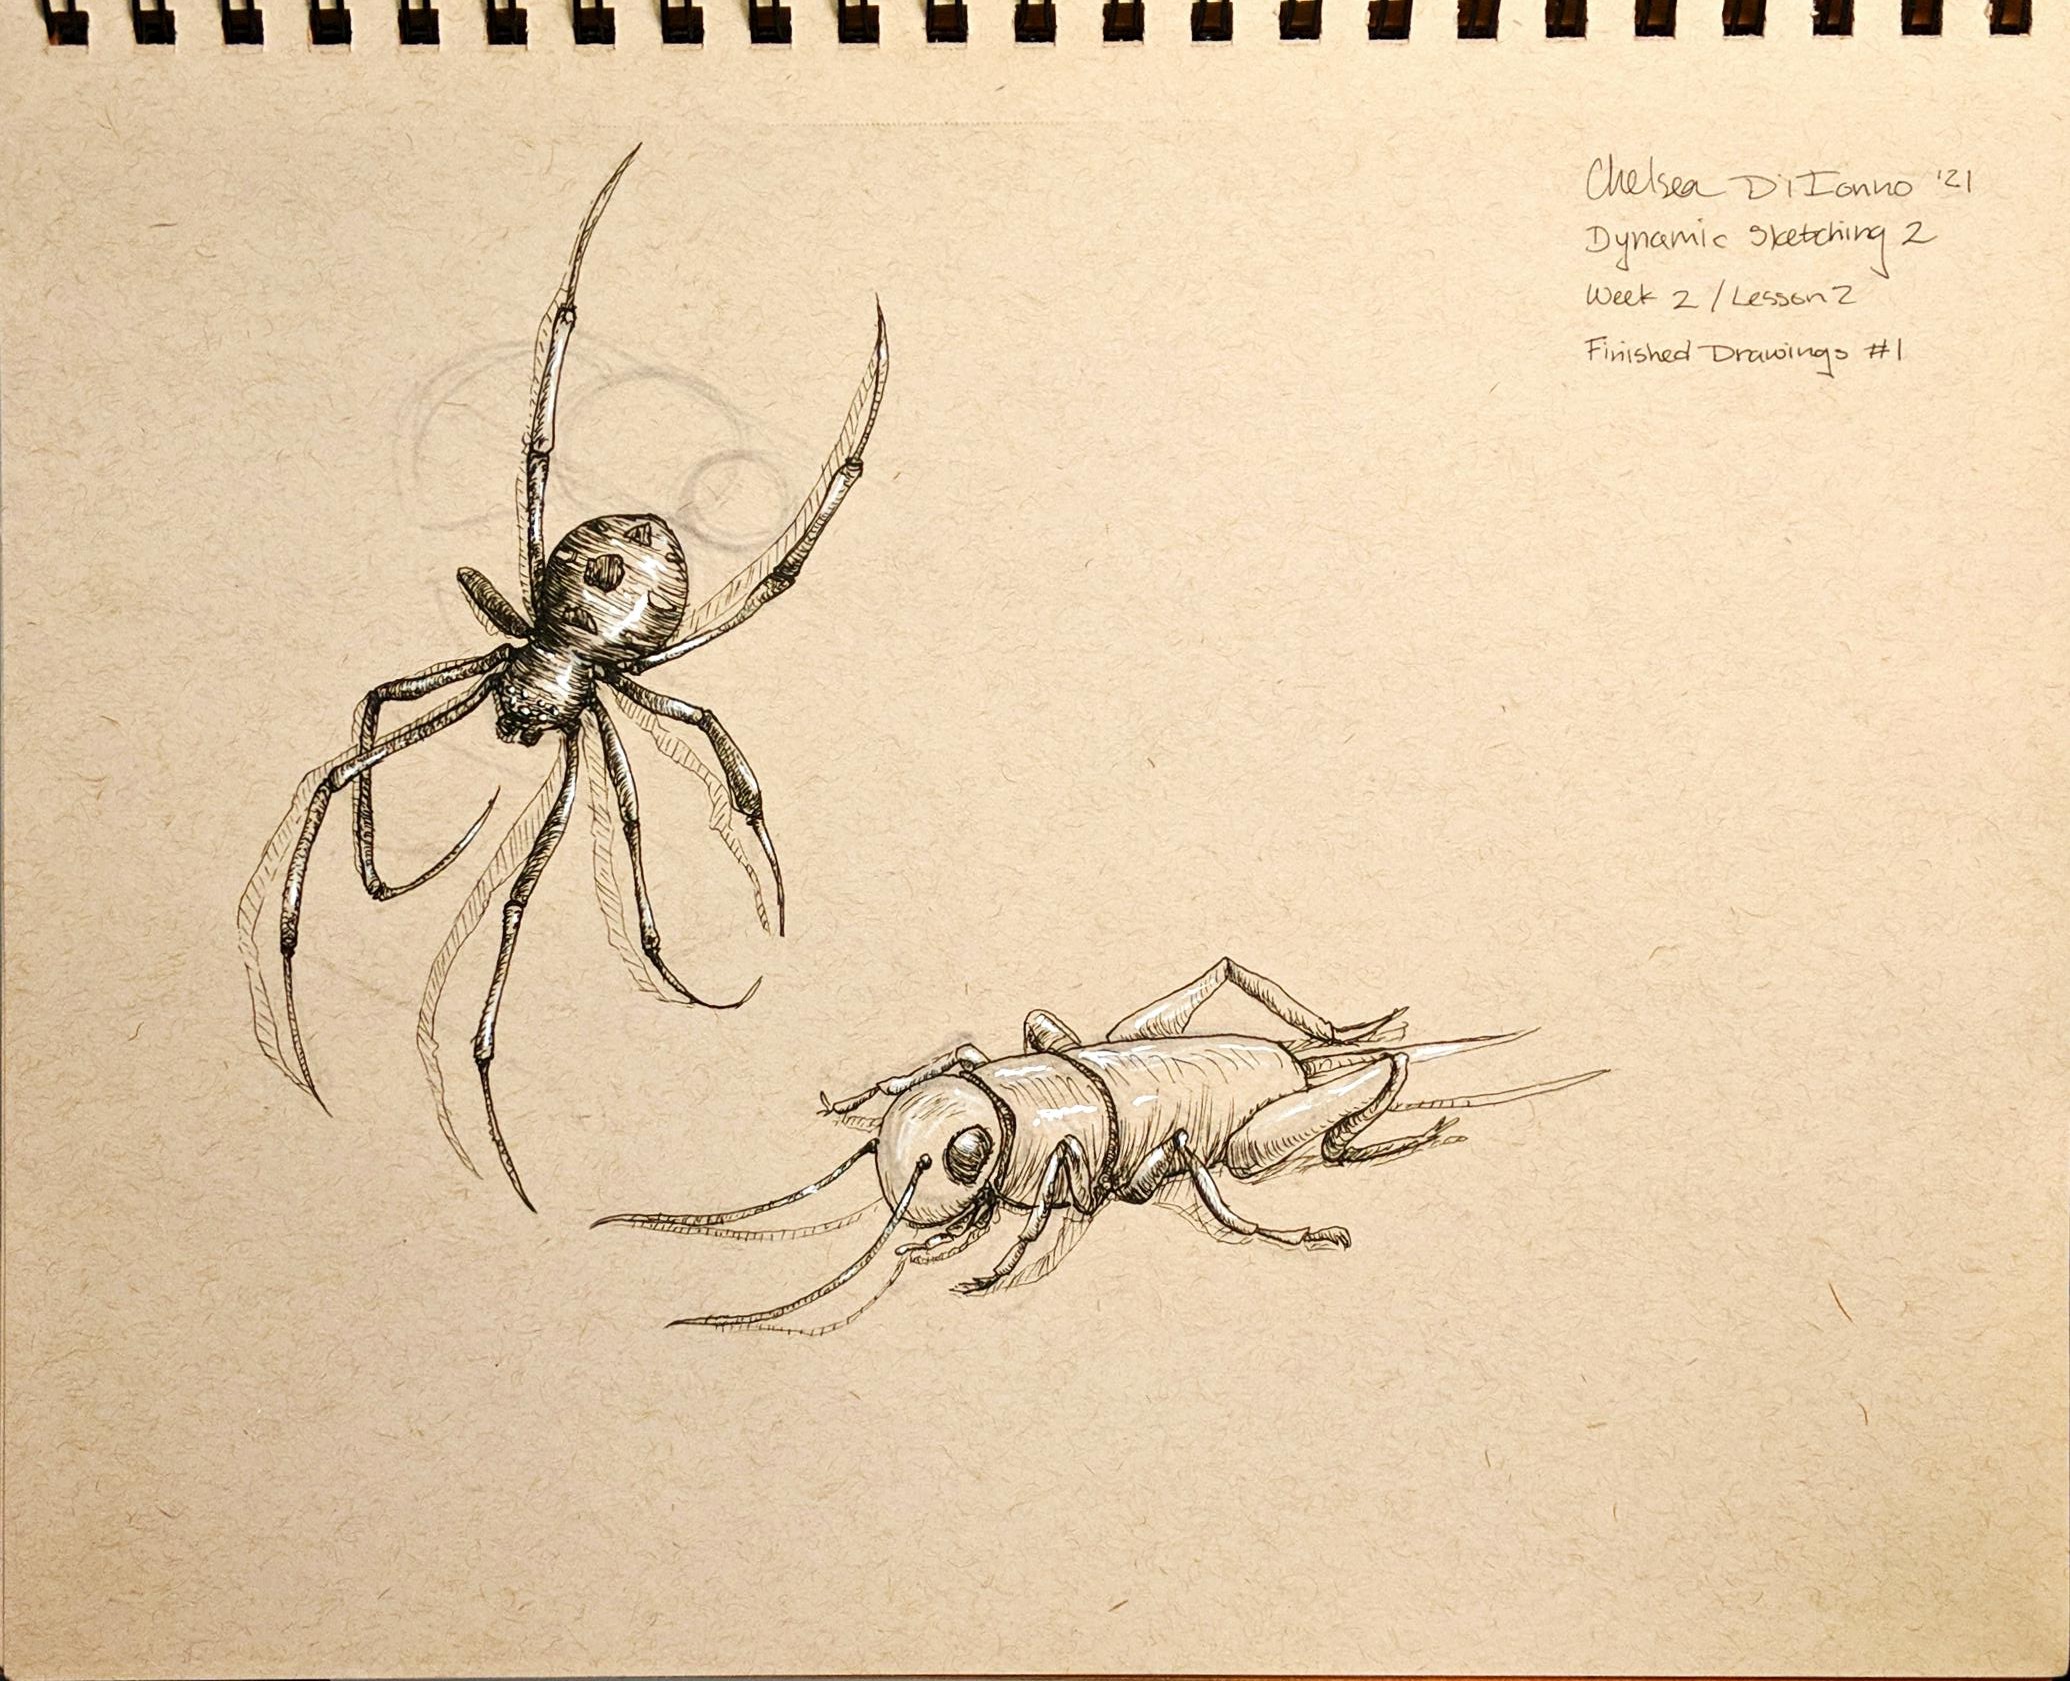 Chelsea DiIonno '21
Dynamic Sketching 2
Week 2 / Lesson 2
Finished Drawings #1